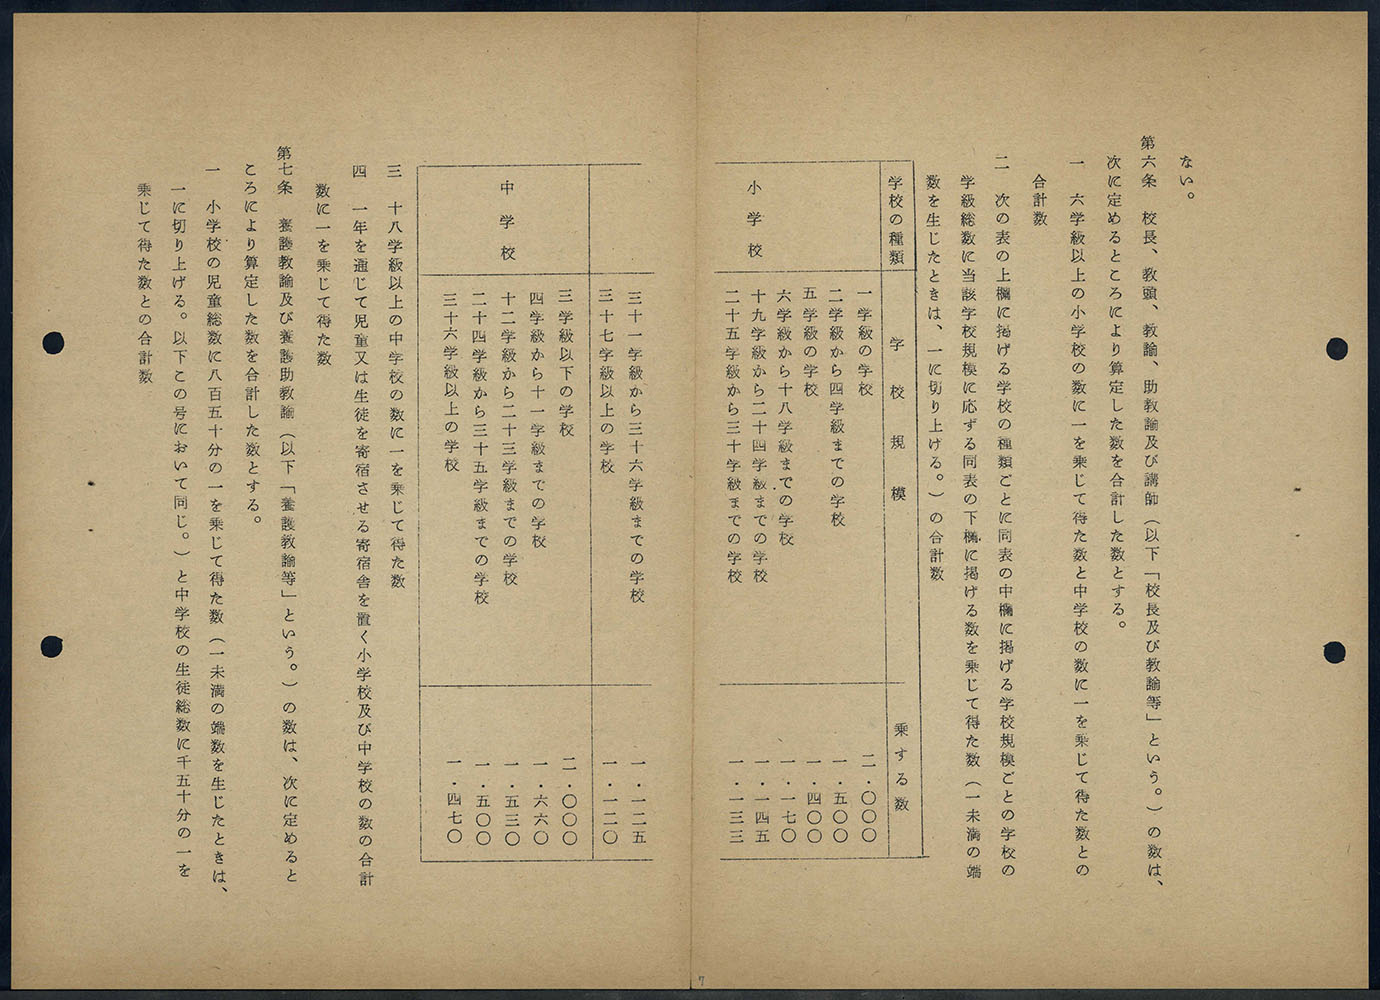 ない。
第六条　校長、教頭、教諭、助教諭及び講師（以下「校長及び教諭等」という。）の数は、
次に定めるところにより算定した数を合計した数とする。
一　六学級以上の小学校の数に一を乗じて得た数と中学校の数に一を乗じて得た数との
合計数
二　次の表の上欄に掲げる学校の種類ごとに同表の中欄に掲げる学校規模ごとの学校の
学級総数に当該学校規模に応ずる同表の下欄に掲げる数を乗じて得た数（一未満の端
数を生じたときは、一に切り上げる。）の合計数
学校の種類　学校規模　乗する数
小学校
一学級の学校　二・〇〇〇
二学級から四学級までの学校　一・五〇〇
五学級の学校　一・四〇〇
六学級から十八学級までの学校　一・一七〇
十九学級から二十四学級までの学校　一・一四五
二十五学級から三十学級までの学校　一・一三三
三十一学級から三十六学級までの学校　一・一二五
三十七学級以上の学校　一・一二〇
中学校
三学級以下の学校　二・〇〇〇
四学級から十一学級までの学校　一・六六〇
十二学級から二十三学級までの学校　一・五三〇
二十四学級から三十五学級までの学校　一・五〇〇
三十六学級以上の学校　一・四七〇
三　十八学級以上の中学校の数に一を乗じて得た数
四　一年を通じて児童又は生徒を寄宿させる寄宿舎を置く小学校及び中学校の数の合計
数に一を乗じて得た数
第七条　養護教諭及び養護助教諭（以下「養護教諭等」という。）の数は、次に定めると
ころにより算定した数を合計した数とする。
一　小学校の児童総数に八百五十分の一を乗じて得た数（一未満の端数を生じたときは、
一に切り上げる。以下この号において同じ。）と中学校の生徒総数に千五十分の一を
乗じて得た数との合計数
7